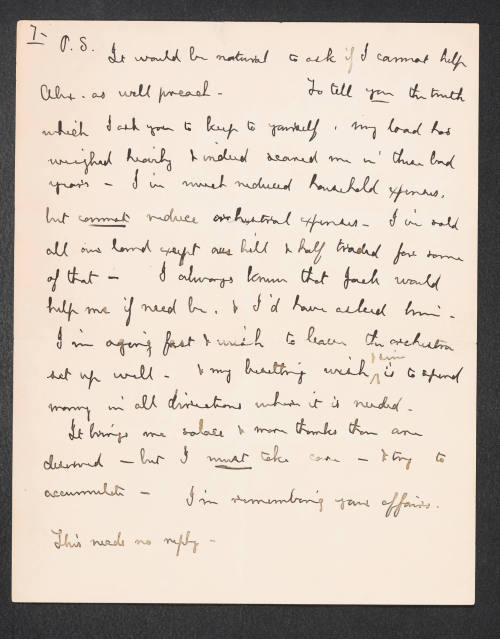 7-
P.S. It would be natural to ask if I cannot help
Alex. as well preach - To tell you the truth
which I ask you to keep to yourself, my load has
weighed heavily & indeed scared me in these bad
years - I've much reduced household expenses,
but cannot reduce orchestral expenses - I've sold
all our land except our hill & half traded for some
of that - I always knew that Jack would
help me if need be, & I'd have asked him -
I'm aging fast & wish to leave the orchestra
set up well - & my besetting wish & sin is to spend
money in all directions where it is needed -
It brings me solace & more thanks than are
deserved - but I must take care - & try to
accumulate - I'm remembering your affairs.
This needs no reply -